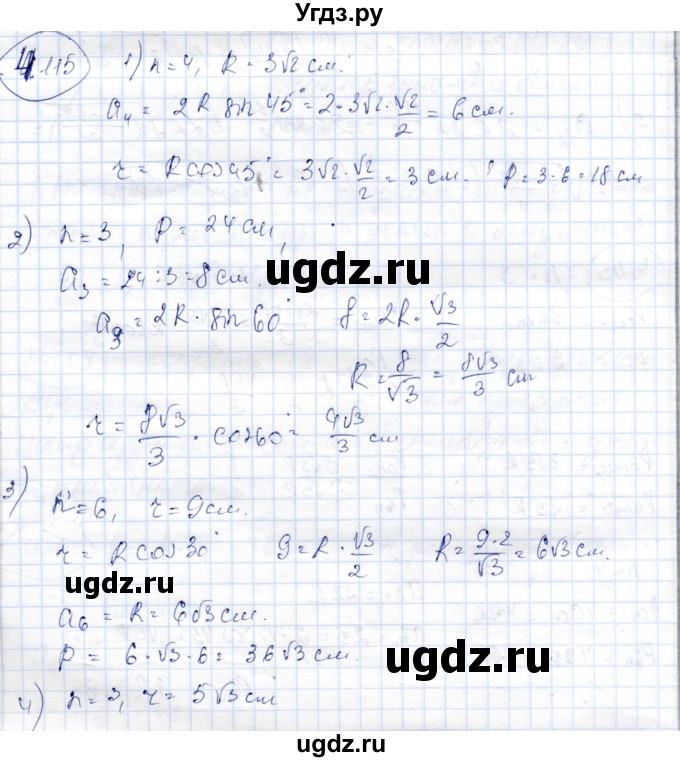 Угдз.ру
4.115 1) n=4, R=3√2 см.
a₄ = 2R sin 45° = 2·3√2·√2/2 = 6 см.
r = R cos 45° = 3√2·√2/2 = 3 см. P = 3·6 = 18 см
2) n=3, P=24 см,
a₃ = 24:3=8 см.
ugdz.ru
a₃ = 2R·sin 60° 8=2R·√3/2
R=8/√3 = 8√3/3 см
r = 8√3/3 · cos 60° = 4√3/3 см
3) n=6, r=9 см.
r = R cos 30° 9=R·√3/2 R=9·2/√3=6√3 см.
ugdz.ru
a₆ = R = 6√3 см.
P = 6·√3·6 = 36√3 см.
ugdz.ru
4) n=3, r=5√3 см
ugdz.ru